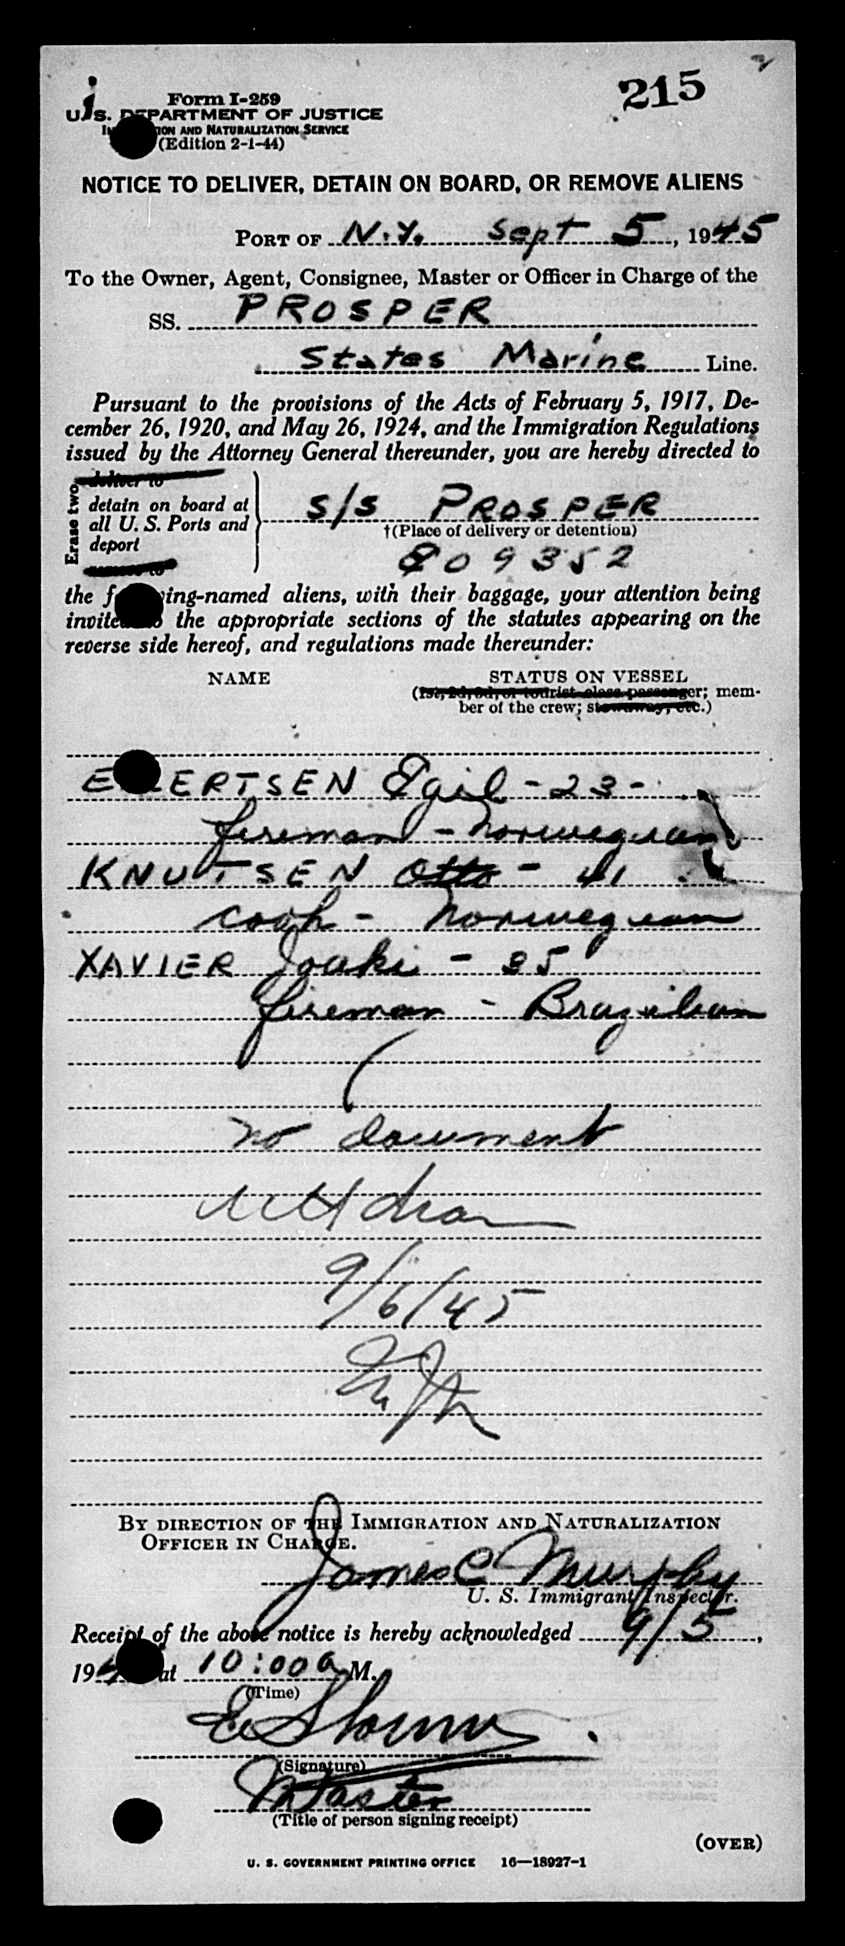 215
Form I-259
U. S. DEPARTMENT OF JUSTICE
IMMIGRATION AND NATURALIZATION SERVICE
(Edition 2-1-44)
NOTICE TO DELIVER, DETAIN ON BOARD, OR REMOVE ALIENS
PORT OF N.Y. Sept 5, 1945
To the Owner, Agent, Consignee, Master or Officer in Charge of the
SS. PROSPER
States Marine Line.
Pursuant to the provisions of the Acts of February 5, 1917, De-
cember 26, 1920, and May 26, 1924, and the Immigration Regulations
issued by the Attorney General thereunder, you are hereby directed to
Erase two
deliver to
detain on board at
all U. S. Ports and
deport
remove to
S/S PROSPER
†(Place of delivery or detention)
809352
the following-named aliens, with their baggage, your attention being
invited to the appropriate sections of the statutes appearing on the
reverse side hereof, and regulations made thereunder:
NAME STATUS ON VESSEL
(1st, 2d, 3d, or tourist class passenger; mem-
ber of the crew; stowaway, etc.)
Egil - 23 -
fireman - Norwegian
KNUTSEN Otto - 41
cook - Norwegian
XAVIER Joaki - 35
fireman - Brazilian
no document
9/6/45
BY DIRECTION OF THE IMMIGRATION AND NATURALIZATION
OFFICER IN CHARGE.
James C Murphy
U. S. Immigrant Inspector.
Receipt of the above notice is hereby acknowledged 9/5,
194 at 10:00 a M.
(Time)
(Signature)
Master
(Title of person signing receipt)
(OVER)
U. S. GOVERNMENT PRINTING OFFICE 16—18927-1